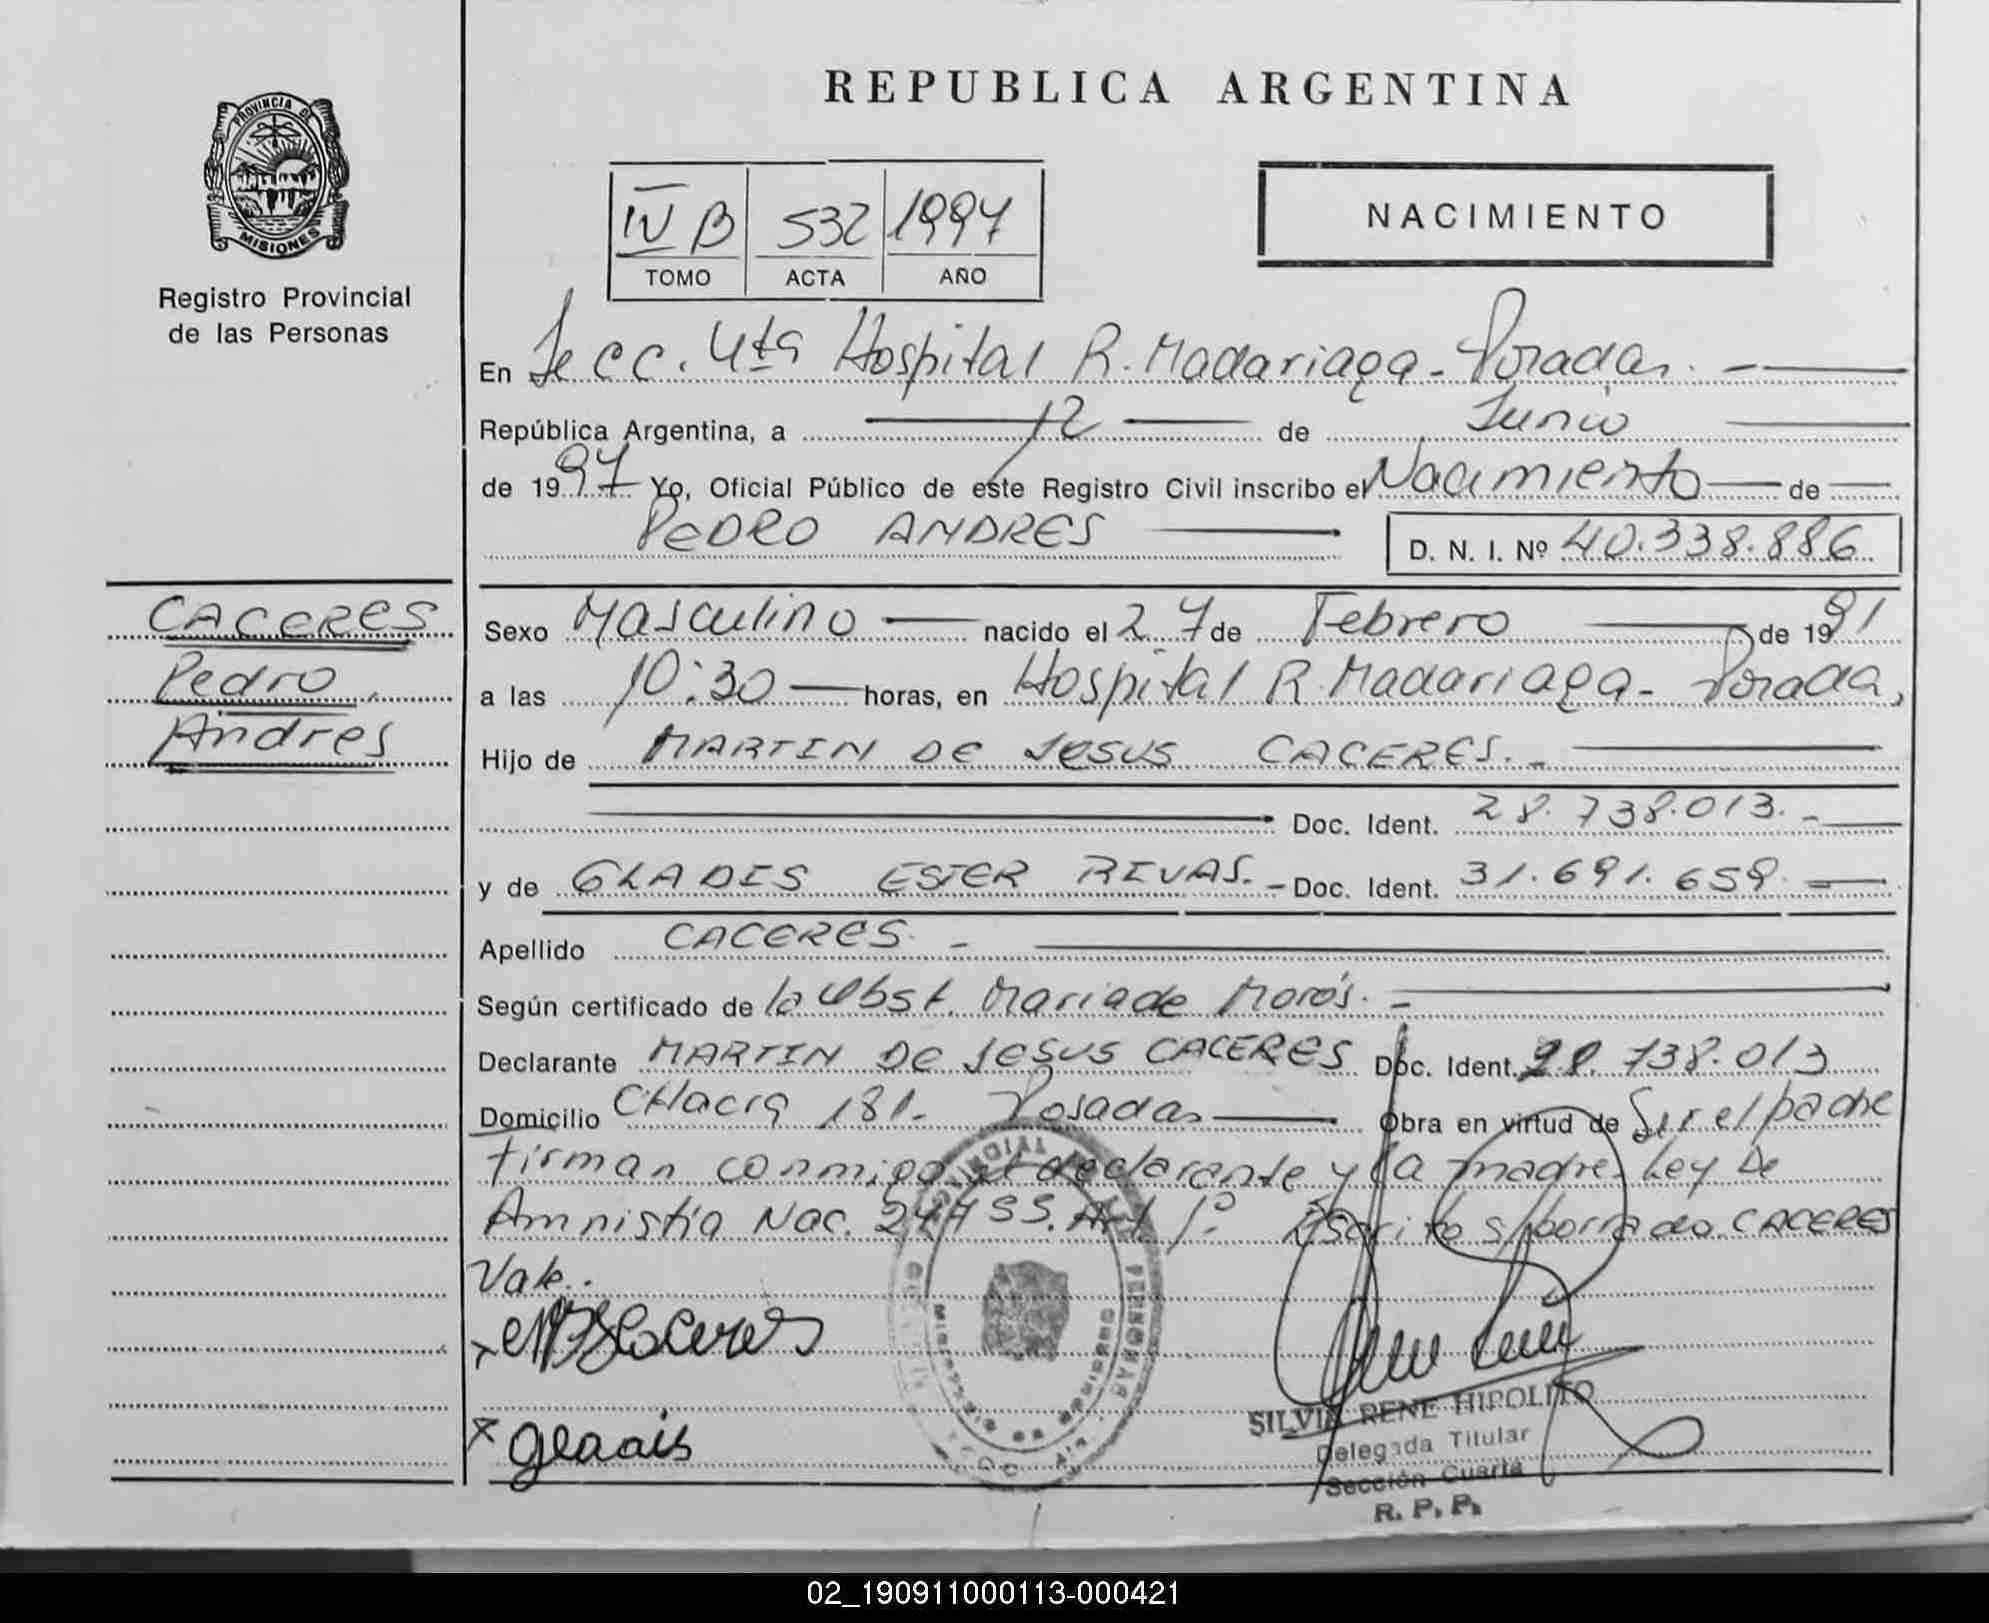 REPUBLICA ARGENTINA
PROVINCIA DE
MISIONES
Registro Provincial
de las Personas
IV B 532 1997
TOMO ACTA AÑO
NACIMIENTO
En Secc. 4ta Hospital R. Madariaga - Posadas.
República Argentina, a 12 de Junio
de 1997 Yo, Oficial Público de este Registro Civil inscribo el Nacimiento de
PEDRO ANDRES D. N. I. Nº 40.338.886
CACERES
Pedro
Andres
Sexo Masculino nacido el 27 de Febrero de 1991
a las 10:30 horas, en Hospital R. Madariaga - Posadas
Hijo de MARTIN DE JESUS CACERES.-
Doc. Ident. 28.738.013.-
y de GLADIS ESTER RIVAS.- Doc. Ident. 31.691.659
Apellido CACERES.-
Según certificado de la Obst. Maria de Morós.-
Declarante MARTIN DE JESUS CACERES Doc. Ident. 28.738.013
Domicilio CHacra 181- Posadas Obra en virtud de Ser el padre
firman conmigo el declarante y la madre. Ley De
Amnistía Nac. 24755. Art 1º. Escrito s/borrado. CACERES
Vale.
x Caceres
x Gladis
SILVIA RENE HIPOLITO
Delegada Titular
Sección Cuarta
R. P. P.
02_190911000113-000421